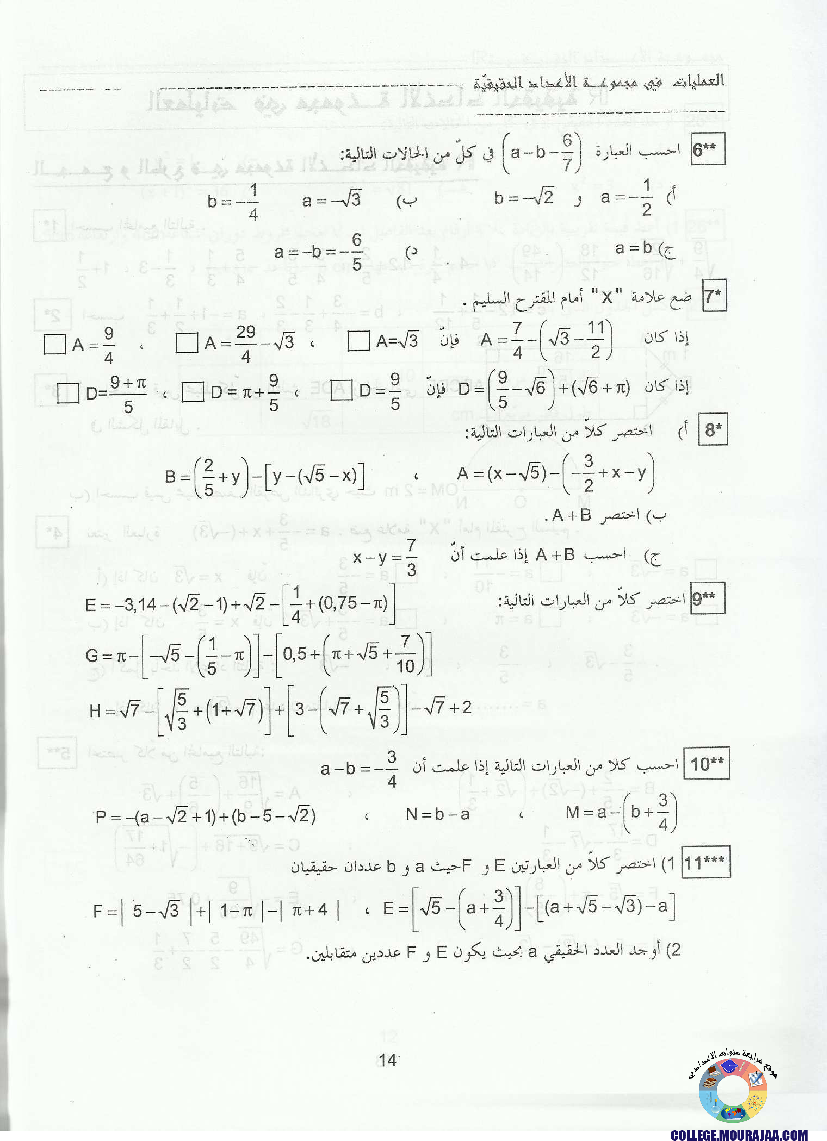 العمليات في مجموعة الأعداد الحقيقيّة
6** احسب العبارة (a-b-6/7) في كلّ من الحالات التالية:
أ) a = -1/2 و b = -√2 ب) a = -√3 b = -1/4
ج) a = b د) a = -b = -6/5
7* ضع علامة "X" أمام المقترح السليم .
إذا كان A = 7/4 - (√3 - 11/2) فإنّ A=√3 □ ، A = 29/4 - √3 □ ، A = 9/4 □
إذا كان D = (9/5 - √6) + (√6 + π) فإنّ D = 9/5 □ ، D = π + 9/5 □ ، D = 9+π/5 □
8* أ) اختصر كلاّ من العبارات التالية:
A = (x-√5) - (-3/2 + x - y) ، B = (2/5 + y) - [y - (√5 - x)]
ب) اختصر A + B .
ج) احسب A + B إذا علمت أنّ x - y = 7/3
9** اختصر كلاّ من العبارات التالية: E = -3,14 - (√2 - 1) + √2 - [1/4 + (0,75 - π)]
G = π - [-√5 - (1/5 - π)] - [0,5 + (π + √5 + 7/10)]
H = √7 - [√5/3 + (1+√7)] + [3 - (√7 + √5/3)] - √7 + 2
10** احسب كلا من العبارات التالية إذا علمت أن a - b = -3/4
M = a - (b + 3/4) ، N = b - a ، P = -(a - √2 + 1) + (b - 5 - √2)
11*** 1) اختصر كلاّ من العبارتين E و F حيث a و b عددان حقيقيان
E = [√5 - (a + 3/4)] - [(a + √5 - √3) - a] ، F = | 5 - √3 | + | 1 - π | - | π + 4 |
2) أوجد العدد الحقيقي a بحيث يكون E و F عددين متقابلين.
14
موقع مراجعة
COLLEGE.MOURAJAA.COM